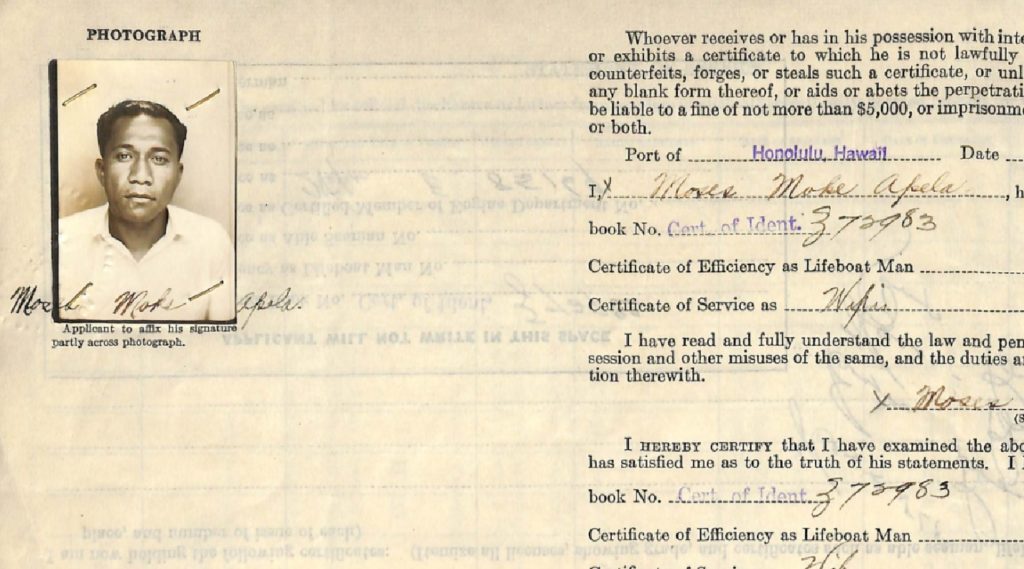 PHOTOGRAPH
Moses Moke Apela.
Applicant to affix his signature
partly across photograph.
Whoever receives or has in his possession with inte
or exhibits a certificate to which he is not lawfully
counterfeits, forges, or steals such a certificate, or unl
any blank form thereof, or aids or abets the perpetrati
be liable to a fine of not more than $5,000, or imprisonme
or both.
Port of Honolulu, Hawaii Date
I, x Moses Moke Apela, h
book No. Cert. of Ident. Z 72983
Certificate of Efficiency as Lifeboat Man
Certificate of Service as
I have read and fully understand the law and pen
session and other misuses of the same, and the duties an
tion therewith.
x Moses
(S
I HEREBY CERTIFY that I have examined the abo
has satisfied me as to the truth of his statements. I
book No. Cert. of Ident. Z 72983
Certificate of Efficiency as Lifeboat Man
APPLICANT WILL NOT WRITE IN THIS SPACE
place, and number of issue of each)
I am now holding the following certificates: (Itemize all licenses, showing grade, and certificates such as able seaman,